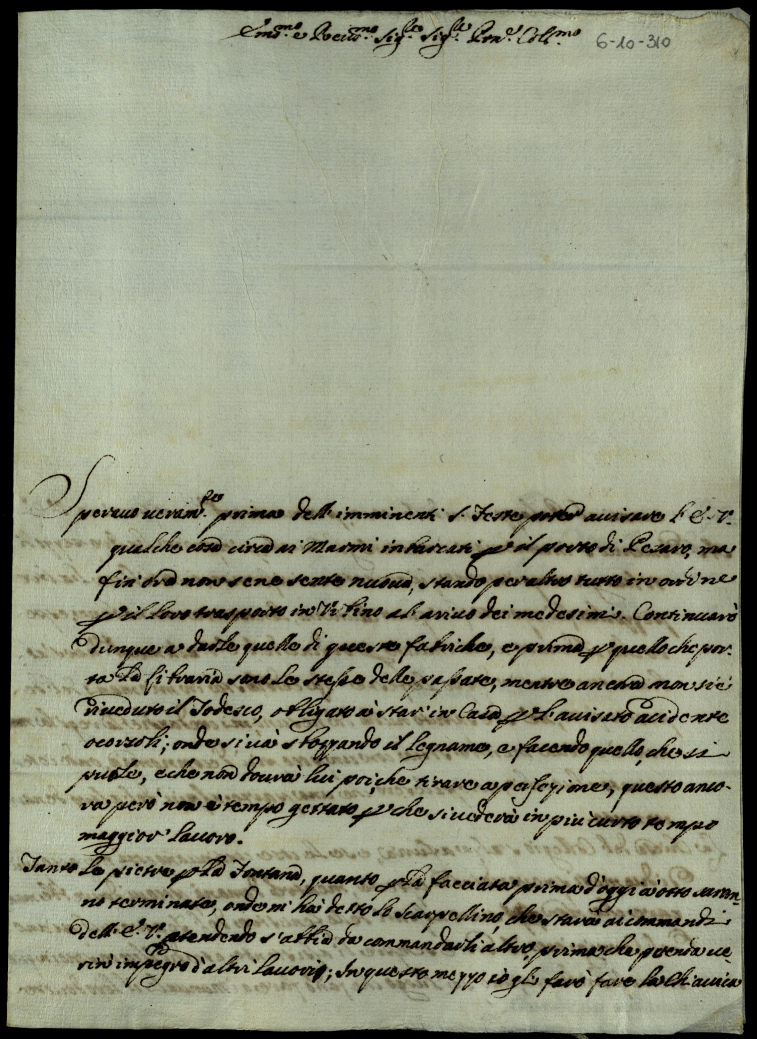 Em.mo e Rev.mo Sig.re Sig.re Pron.e Col.mo 6-10-310
Speravo veram.te prima dell'imminenti S. Feste poter avisare l'E. V.
qualche cosa circa ai Marmi inbarcati p il porto di Pesaro, ma
fin ora non se ne sente nuova, stando per altro tutto in ordine
p il loro trasporto in Urbino al arivo dei medesimi. Continuarò
dunque a darle quelle di queste fabriche, e prima p quello che por-
ta la libraria sono le stesse delle passate, mentre ancora non si è
riveduto il Todesco, obligato a star in Casa p l'avisato accidente
ocorsoli; onde si và sbozzando il legname, e facendo quello, che si
puole, e che non dovrà lui poi, che tirare a perfezione, questo anco-
ra però non è tempo gettato p che si vederà in più curto tempo
maggior lavoro.
Tanto le pietre p la Fontana, quanto p la facciata prima d'oggi a otto saran-
no terminate, onde m'ha detto lo Scarpellino, che starà ai commandi
dell'E. V. atendendo s'abbia da commandarli altro, prima che prenda ve-
run impegno d'altri lavori; In questo mezzo io gli farò fare la Chiavica